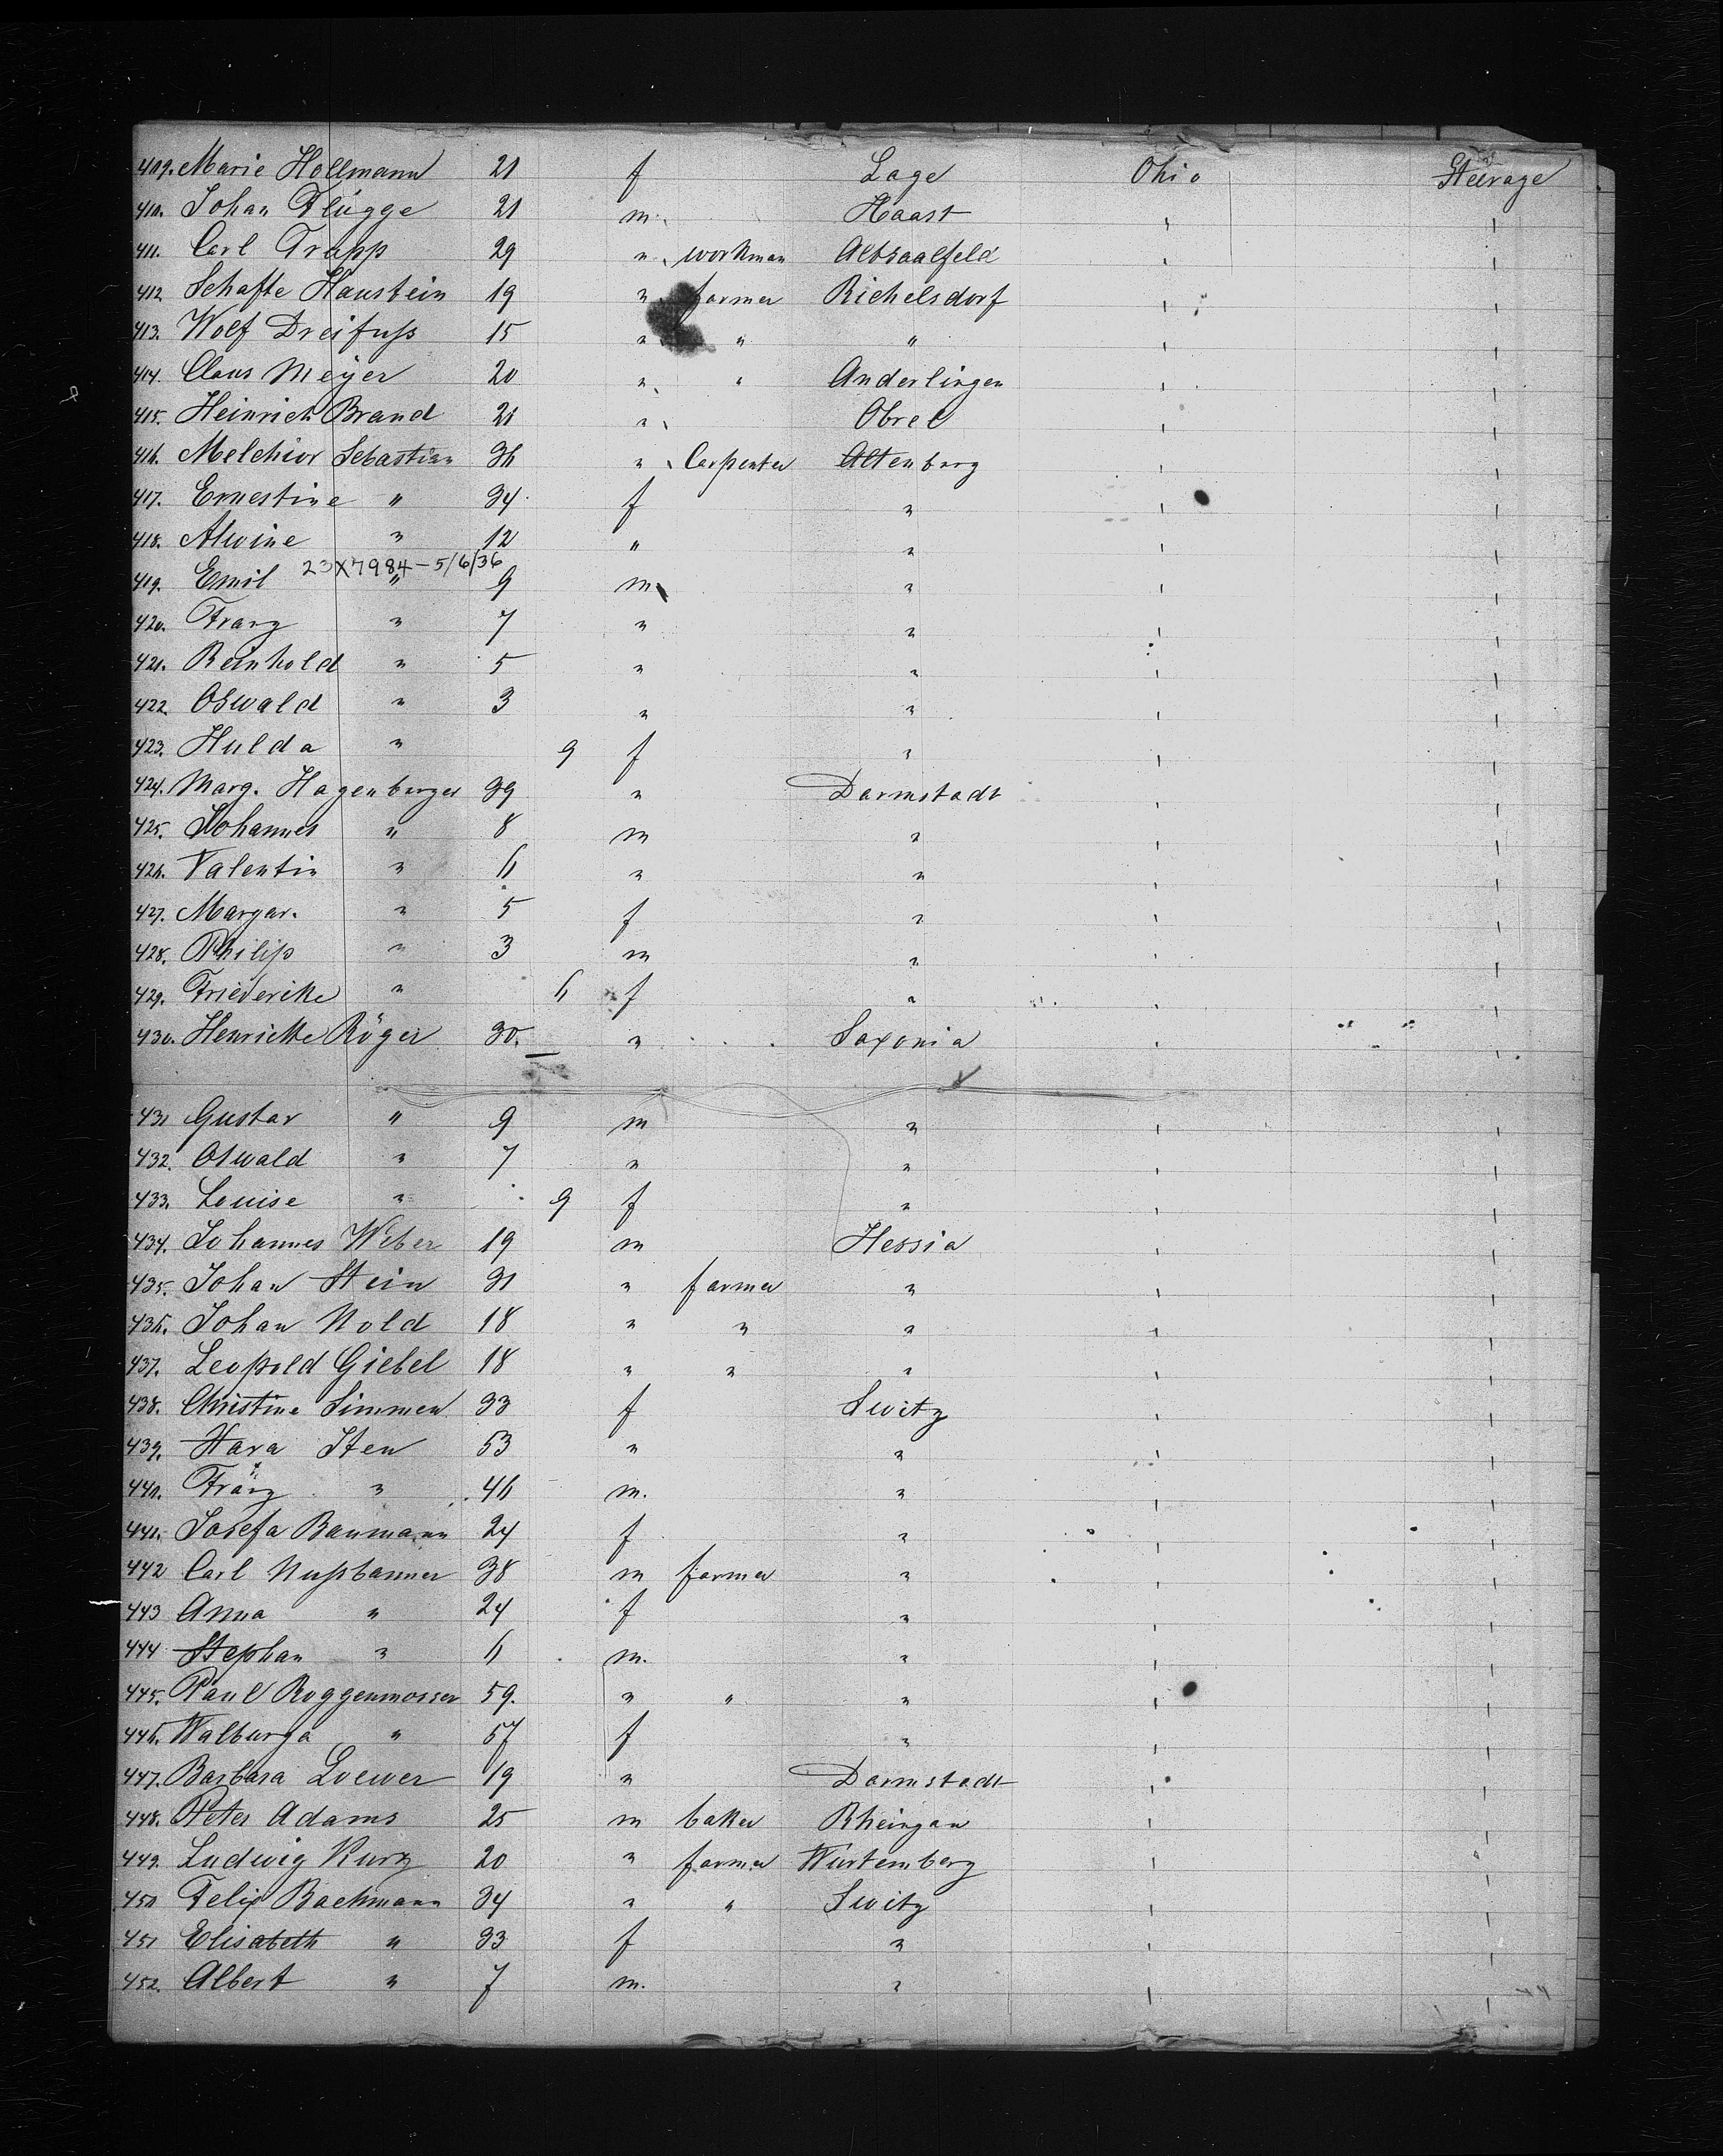 409. Marie Hollmann 21 f Lage Ohio Steerage
410. Johan Flügge 21 m. Haast " "
411. Carl Trapp 29 " workman Altsaalfeld " "
412. Schafte Haustein 19 " farmer Richelsdorf " "
413. Wolf Dreifuss 15 " " " " "
414. Claus Meÿer 20 " " Anderlingen " "
415. Heinrich Brand 21 " Obrel " "
416. Melchior Sebastian 36 " Carpenter Altenburg " "
417. Ernestine " 34 f " " "
418. Alwine " 12 " " " "
23X7984-5/6/36
419. Emil " 9 m " " "
420. Franz " 7 " " " "
421. Reinhold " 5 " " " "
422 Oswald " 3 " " " "
423. Hulda " 9 f " " "
424. Marg. Hagenburger 39 " Darmstadt " "
425. Johannes " 8 m " " "
426. Valentin " 6 " " " "
427. Margar. " 5 f " " "
428. Philip " 3 m " " "
429. Friederike " 6 f " " "
430. Henriette Röger 30. " Saxonia " "
431 Gustav " 9 m " " "
432. Oswald " 7 " " " "
433. Louise " 9 f " " "
434. Johannes Weber 19 m Hessia " "
435. Johan Stein 31 " farmer " " "
436. Johan Nold 18 " " " " "
437. Leopold Giebel 18 " " " " "
438. Christine Simmen 33 f Switz " "
439. Hara Iten 53 " " " "
440. Franz " 46 m. " " "
441. Josefa Baumann 24 f " " "
442 Carl Nussbaumer 38 m farmer " " "
443 Anna " 24 f " " "
444 Stephan " 6 m. " " "
445. Paul Roggenmosser 59. " " " " "
446. Walburga " 57 f " " "
447. Barbara Loewer 19 " Darmstadt " "
448. Peter Adams 25 m baker Rheingau " "
449. Ludwig Kurz 20 " farmer Würtemberg " "
450 Felix Bachmann 34 " " Switz " "
451 Elisabeth " 33 f " " "
452. Albert " 7 m. " " "